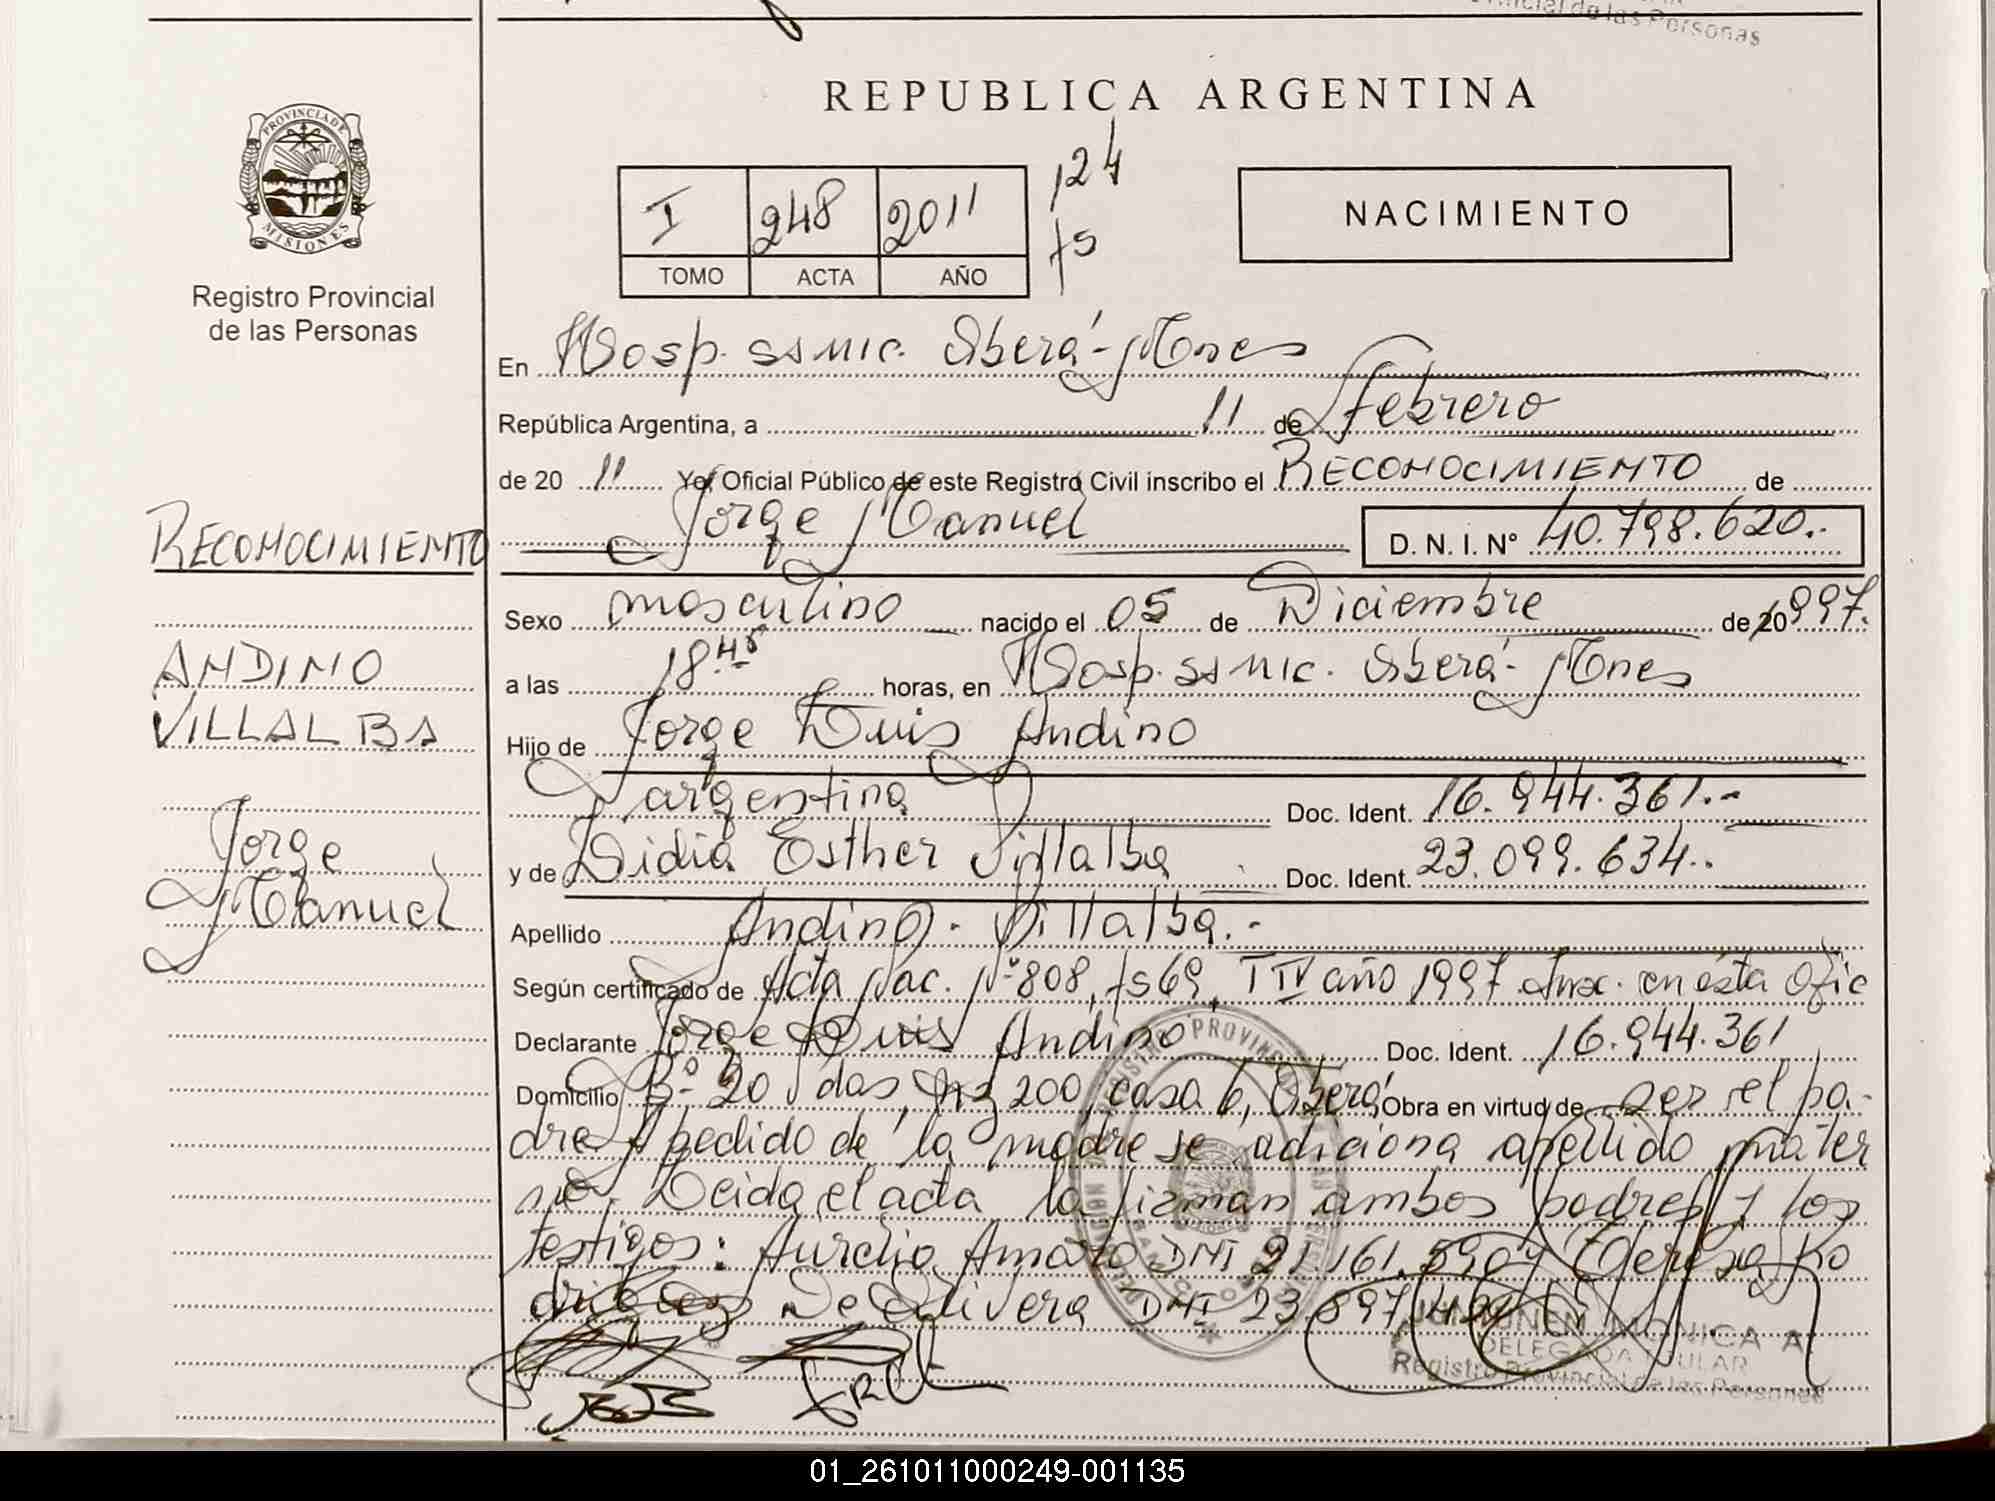 ncial de las Personas
REPUBLICA ARGENTINA
PROVINCIA DE
MISIONES
Registro Provincial
de las Personas
I 248 2011
TOMO ACTA AÑO
124
fs
NACIMIENTO
En Hosp. SSMIC. Oberá - Mnes
República Argentina, a 11 de Febrero
de 20 11 Yo, Oficial Público de este Registro Civil inscribo el RECONOCIMIENTO de
Jorge Manuel D. N. I. N° 40.798.620.-
RECONOCIMIENTO
ANDINO
VILLALBA
Jorge
Manuel
Sexo masculino nacido el 05 de Diciembre de 1997.
a las 18 45 horas, en Hosp. SSMIC. Oberá - Mnes
Hijo de Jorge Luis Andino
argentina Doc. Ident. 16.944.361.-
y de Lidia Esther Villalba Doc. Ident. 23.099.634..
Apellido Andino - Villalba.-
Según certificado de Acta Nac. N° 808, fs 69, T IV año 1997 Insc. en ésta Ofic
Declarante Jorge Luis Andino Doc. Ident. 16.944.361
Domicilio B° 20 Vdas, Mz 200, casa 6, Oberá Obra en virtud de ser el pa-
dre. A pedido de la madre se adiciona apellido mater
no. Leida el acta la firman ambos padres y los
testigos: Aurelio Amaro DNI 21.161.590 y Teresa Ro
driguez De Olivera DNI 23.897.
MONICA A
DELEGADA TITULAR
Registro Provincial de las Personas
01_261011000249-001135